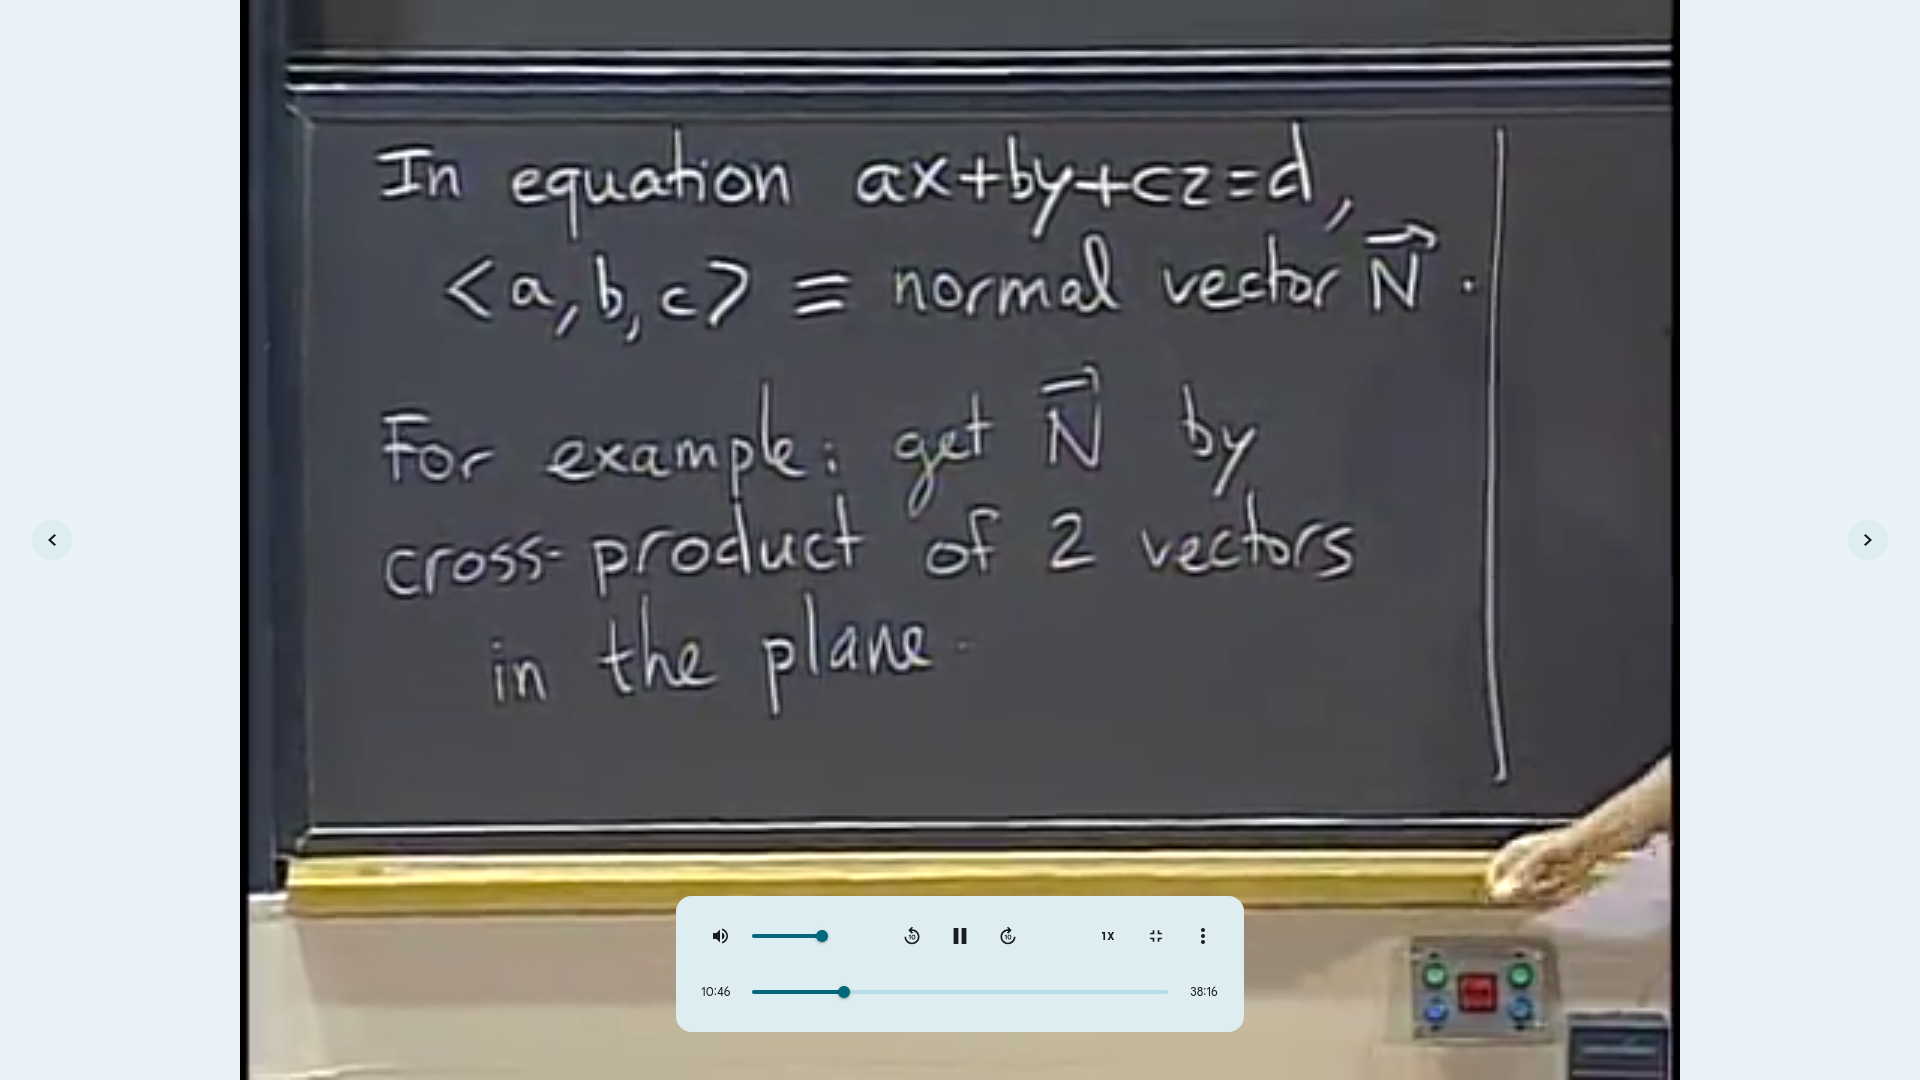 In equation ax+by+cz=d,
<a, b, c> ≡ normal vector N⃗.
For example: get N⃗ by
cross-product of 2 vectors
in the plane.
1X
10:46
38:16